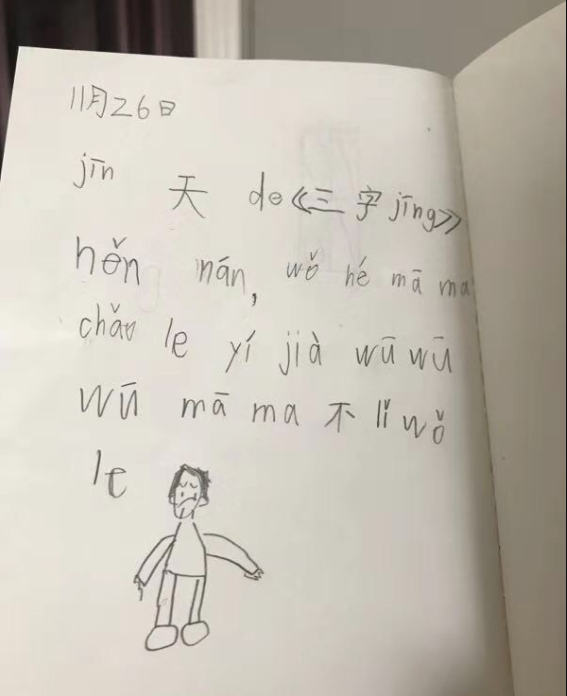 11月26日
jīn 天 de《三字jīng》
hěn nán, wǒ hé mā ma
chǎo le yí jià wū wū
wū mā ma 不 lǐ wǒ
le